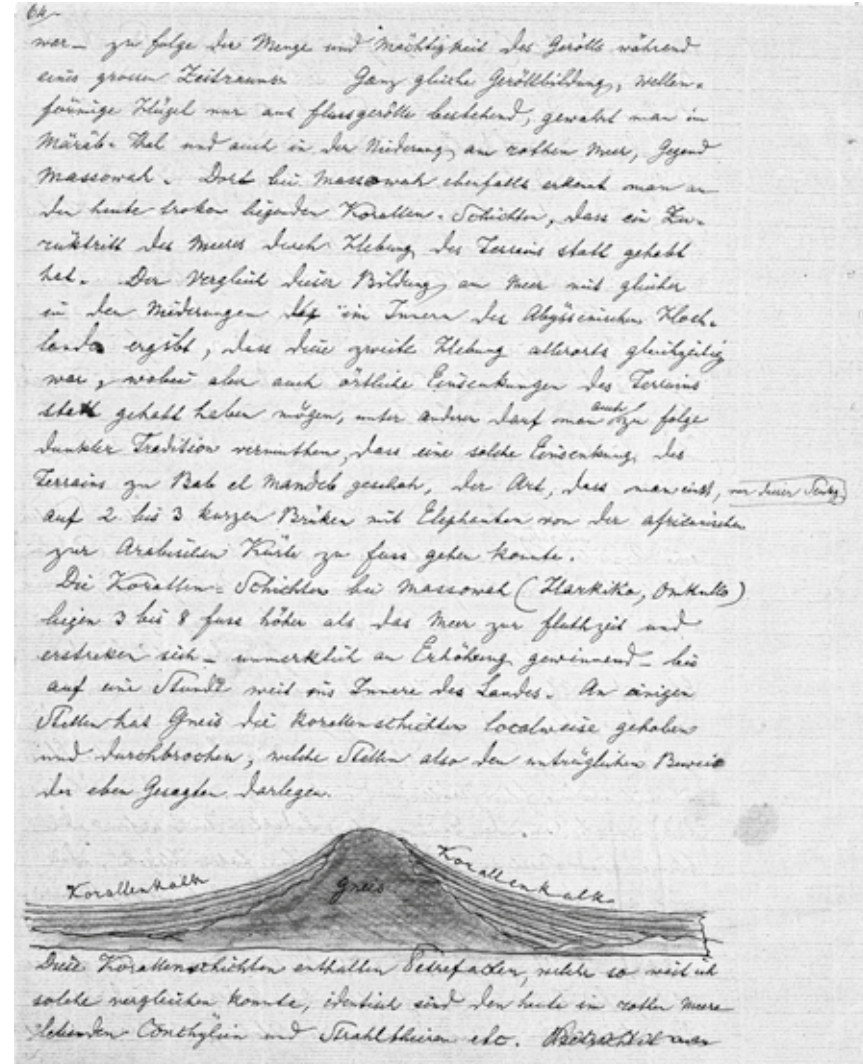 64
war – zu folge der Menge und Mächtigkeit des Gerölls während
eines grossen Zeitraumes Ganz gleiche Geröllbildung, wellen-
förmige Hügel nur aus flussgerölle bestehend, gewahrt man im
Märäb-Thal und auch in der Niederung am rothen Meer, Gegend
Massowah. Dort bei Massowah ebenfalls erkent man an
den heute troken liegenden Korallen-Schichten, dass ein Zu-
rüktritt des Meeres durch Hebung des Terrains statt gehabt
hat. Der Vergleich dieser Bildung am Meer mit gleicher
in den Niederungen im Innern des Abyssinischen Hoch-
lands ergibt, dass diese zweite Hebung allerorts gleichzeitig
war, wobei aber auch örtliche Einsenkungen des Terrains
statt gehabt haben mögen, unter anderen darf man auch zu folge
dunkler Tradition vermuthen, dass eine solche Einsenkung des
Terrains zu Bab el Mandeb geschah, der Art, dass man einst, vor dieser
auf 2 bis 3 kurzen Brüken mit Elephanten von der afrikanischen
zur Arabischen Küste zu fuss gehen konnte.
Die Korallen-Schichten bei Massowah (Harkiko, Omkullo)
liegen 3 bis 8 fuss höher als das Meer zur fluthzeit und
erstreken sich – unmerklich an Erhöhung gewinnend – bis
auf eine Stunde weit ins Innere des Landes. An einigen
Stellen hat Gneis die Korallenschichten localweise gehoben
und durchbrochen, welche Stellen also den untrüglichen Beweis
des eben Gesagten darlegen.
Korallenkalk
Gneis
Korallenkalk
Diese Korallenschichten enthalten Petrefacten, welche so weit ich
solche vergleichen konnte, identisch sind den heute im rothen Meere
lebenden Conchylien und Strahlthieren etc. Betrachtet man